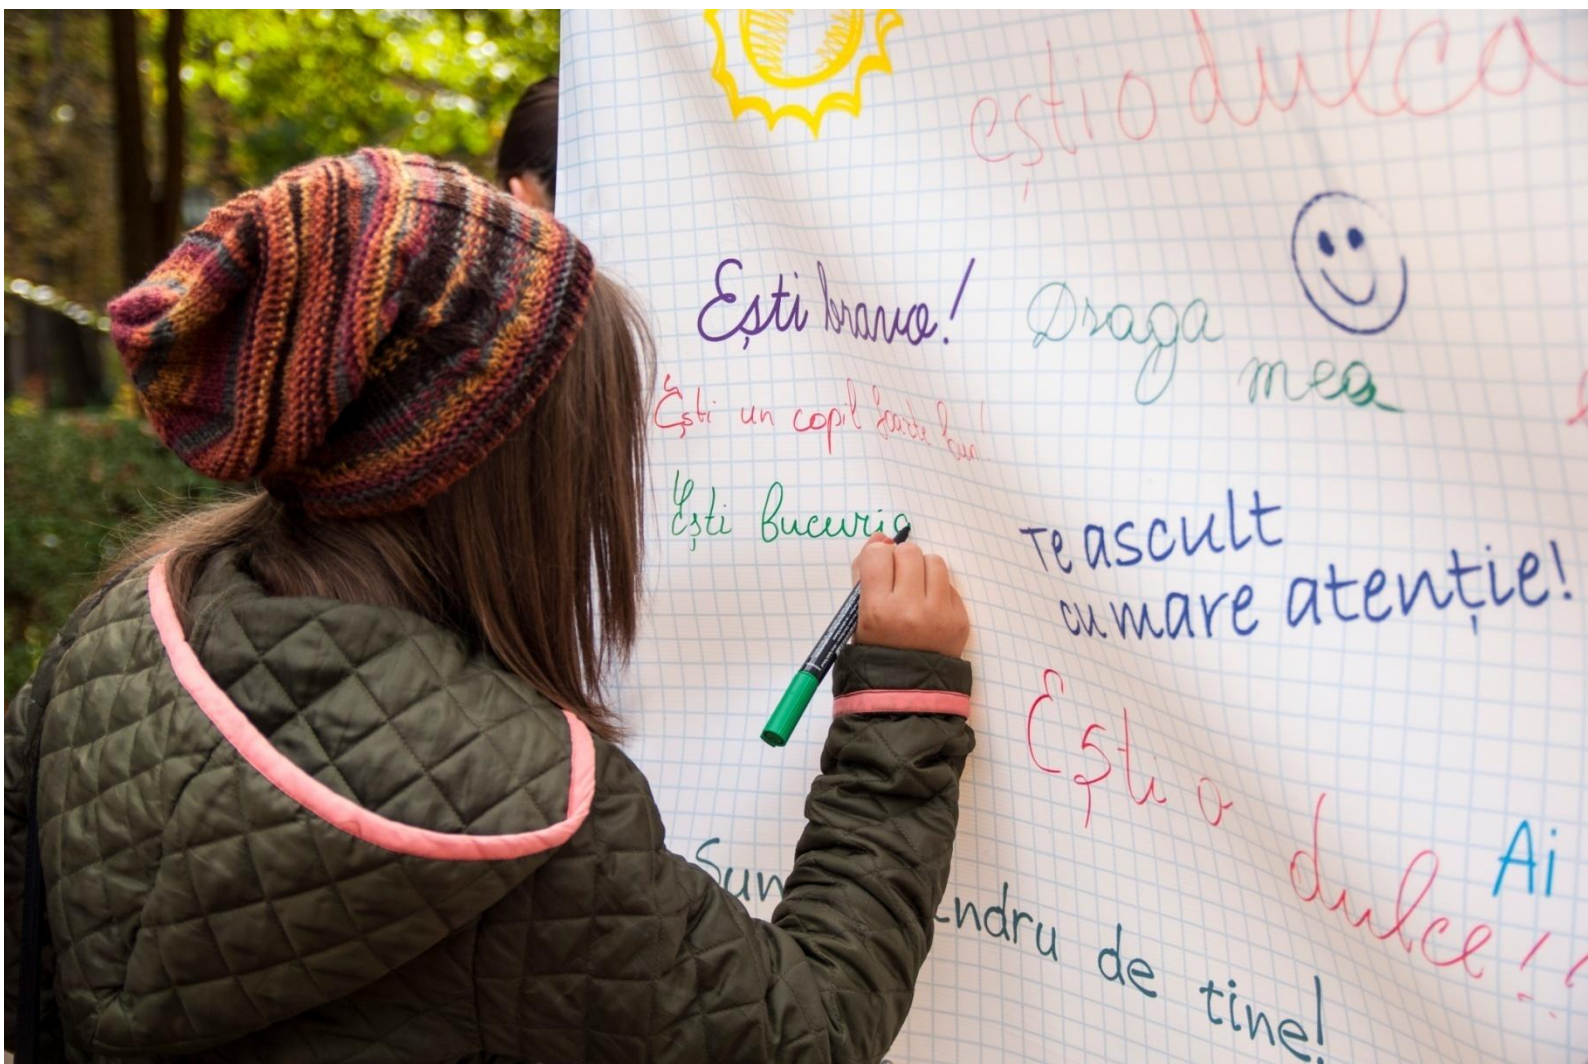 ești o dulca
Ești bravo!
Draga
mea
Ești un copil foarte bun!
Ești bucuria
Te ascult
cu mare atenție!
Ești o
dulce!!
Ai
de tine!